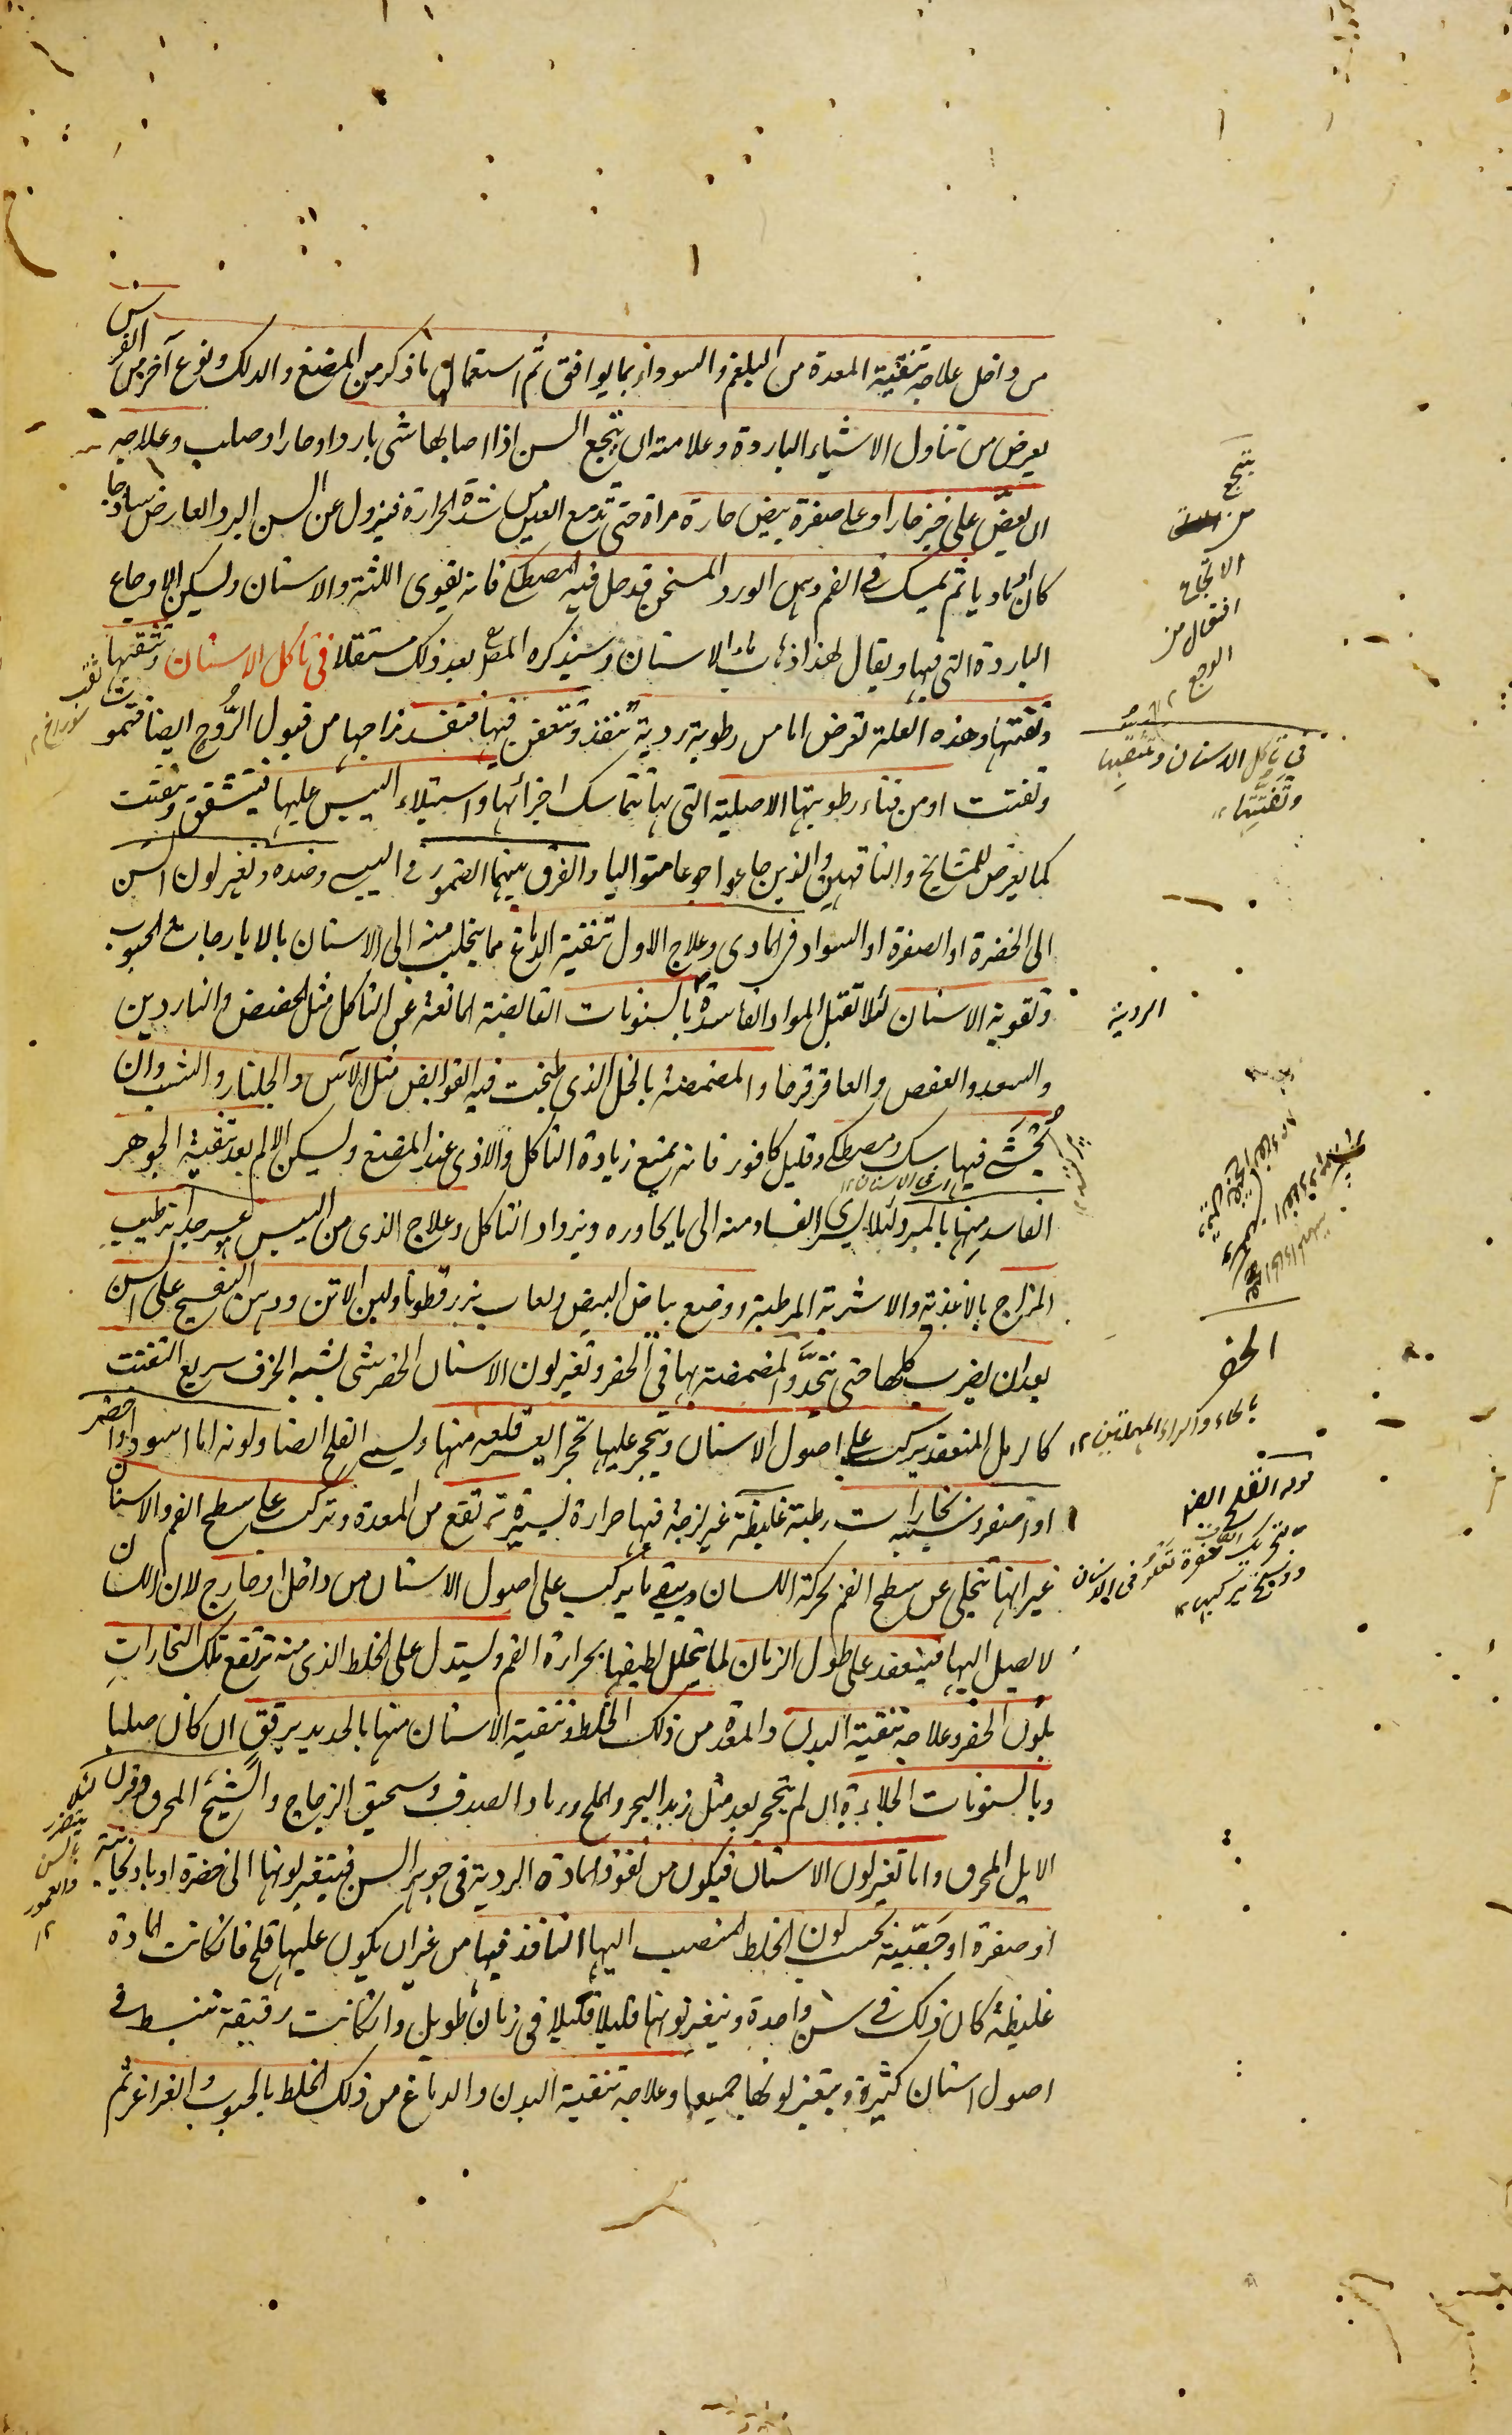 من داخل علاجه تنقية المعدة من البلغم والسوداء بما يوافق ثم استعمال ما ذكر من المضغ والدلك ونوع آخر من الضرس
يعرض من تناول الاشياء الباردة وعلامته ان يتجع السن اذا اصابها شى بارد او حار او صلب وعلاجه
ان يعض على خبز حار او على صفرة بيض حارة مراة حتى تدمع العين من شدة الحرارة فيزول عن السن البرد العارض ساذجا
كان او ماديا ثم يمسك فى الفم دهن الورد المسخن قد حل فيه المصطكى فانه يقوى اللثة والاسنان ويسكن الاوجاع
الباردة التى فيها ويقال لهذا ذهاب ماء الاسنان وسيذكره المص بعد ذلك مستقلا فى تاكل الاسنان وتثقبها
وتفتتها وهذه العلة تعرض اما من رطوبة ردية تنفذ وتتعفن فيها فتفسد مزاجها من قبول الروح ايضا فتموت
وتفتت او من فناء رطوبتها الاصلية التى بها تتماسك اجزائها واستيلاء اليبس عليها فتتشقق وتتفتت
كما يعرض للمشايخ والناقهين والذين جاعوا جوعا متواليا والفرق بينهما الضمور فى اليبسى وضده وتغير لون السن
الى الخضرة او الصفرة او السواد فى المادى وعلاج الاول تنقية الدماغ مما يتحلب منه الى الاسنان بالايارجات والحبوب
وتقوية الاسنان لئلا تقبل المواد الفاسدة بالسنونات القابضة المانعة عن التاكل مثل الحضض والناردين
والسعد والعفص والعاقرقرحا والمضمضة بالخل الذى طبخت فيه القوابض مثل الآس والجلنار والشب وان
يحشى فيها سك ومصطكى وقليل كافور فانه يمنع زيادة التاكل والاذى عند المضغ ويسكن الالم بعد تنقية الجوهر
الفاسد منها بالمبرد لئلا يسرى الفساد منه الى ما يجاوره ويزداد التاكل وعلاج الذى من اليبس عسر جدا ترطيب
المزاج بالاغذية والاشربة المرطبة ووضع بياض البيض ولعاب بزرقطونا ولبن الاتن ودهن البنفسج على السن
بعد ان يضرب كلها حتى تتحد والمضمضة بها فى الحفر وتغير لون الاسنان الحفر شى يشبه الخزف سريع التفتت
كالرمل المنعقد يركب على اصول الاسنان ويتحجر عليها تحجرا يعسر قلعه منها ويسمى القلح ايضا ولونه اما اسود او اخضر
او اصفر وسببه بخارات رطبة غليظة غير لزجة فيها حرارة يسيرة ترتفع من المعدة وتركب على سطح الفم والاسنان
غير انها تنجلى عن سطح الفم لحركة اللسان ويبقى ما يركب على اصول الاسنان من داخل او خارج لان اللسان
لا يصل اليها فينعقد على طول الزمان لما يتحلل لطيفها بحرارة الفم ويستدل على الخلط الذى منه ترتفع تلك البخارات
بلون الحفر وعلاجه تنقية البدن والمعدة من ذلك الخلط وتنقية الاسنان منها بالحديد برفق ان كان صلبا
وبالسنونات الجلاءة ان لم يتحجر بعد مثل زبد البحر والملح ورماد الصدف وسحيق الزجاج والشيح المحرق وقرن
الايل المحرق واما تغير لون الاسنان فيكون من نفوذ المادة الردية فى جوهر السن فيتغير لونها الى خضرة او باذنجانية
او صفرة او جصية بحسب لون الخلط المنصب اليها النافذ فيها من غير ان يكون عليها قلح فان كانت المادة
غليظة كان ذلك فى سن واحدة ويتغير لونها قليلا قليلا فى زمان طويل وان كانت رقيقة تنبسط فى
اصول اسنان كثيرة ويتغير لونها جميعا وعلاجه تنقية البدن والدماغ من ذلك الخلط بالحبوب والغراغر ثم
يتجع
من
الاتجاع
افتعال من
الوجع ١٢
فى تاكل الاسنان وتثقبها
وتفتتها
الردية
الحفر
بالحاء والراء المهملتين ١٢
قوله القلح الخ
بتحريك القاف صفرة تعلو فى الاسنان
ووسخ يركبها ١٢
ثقب
سوراخ ١٢
لئلا
يتضرر
السن
والعمور
١٢